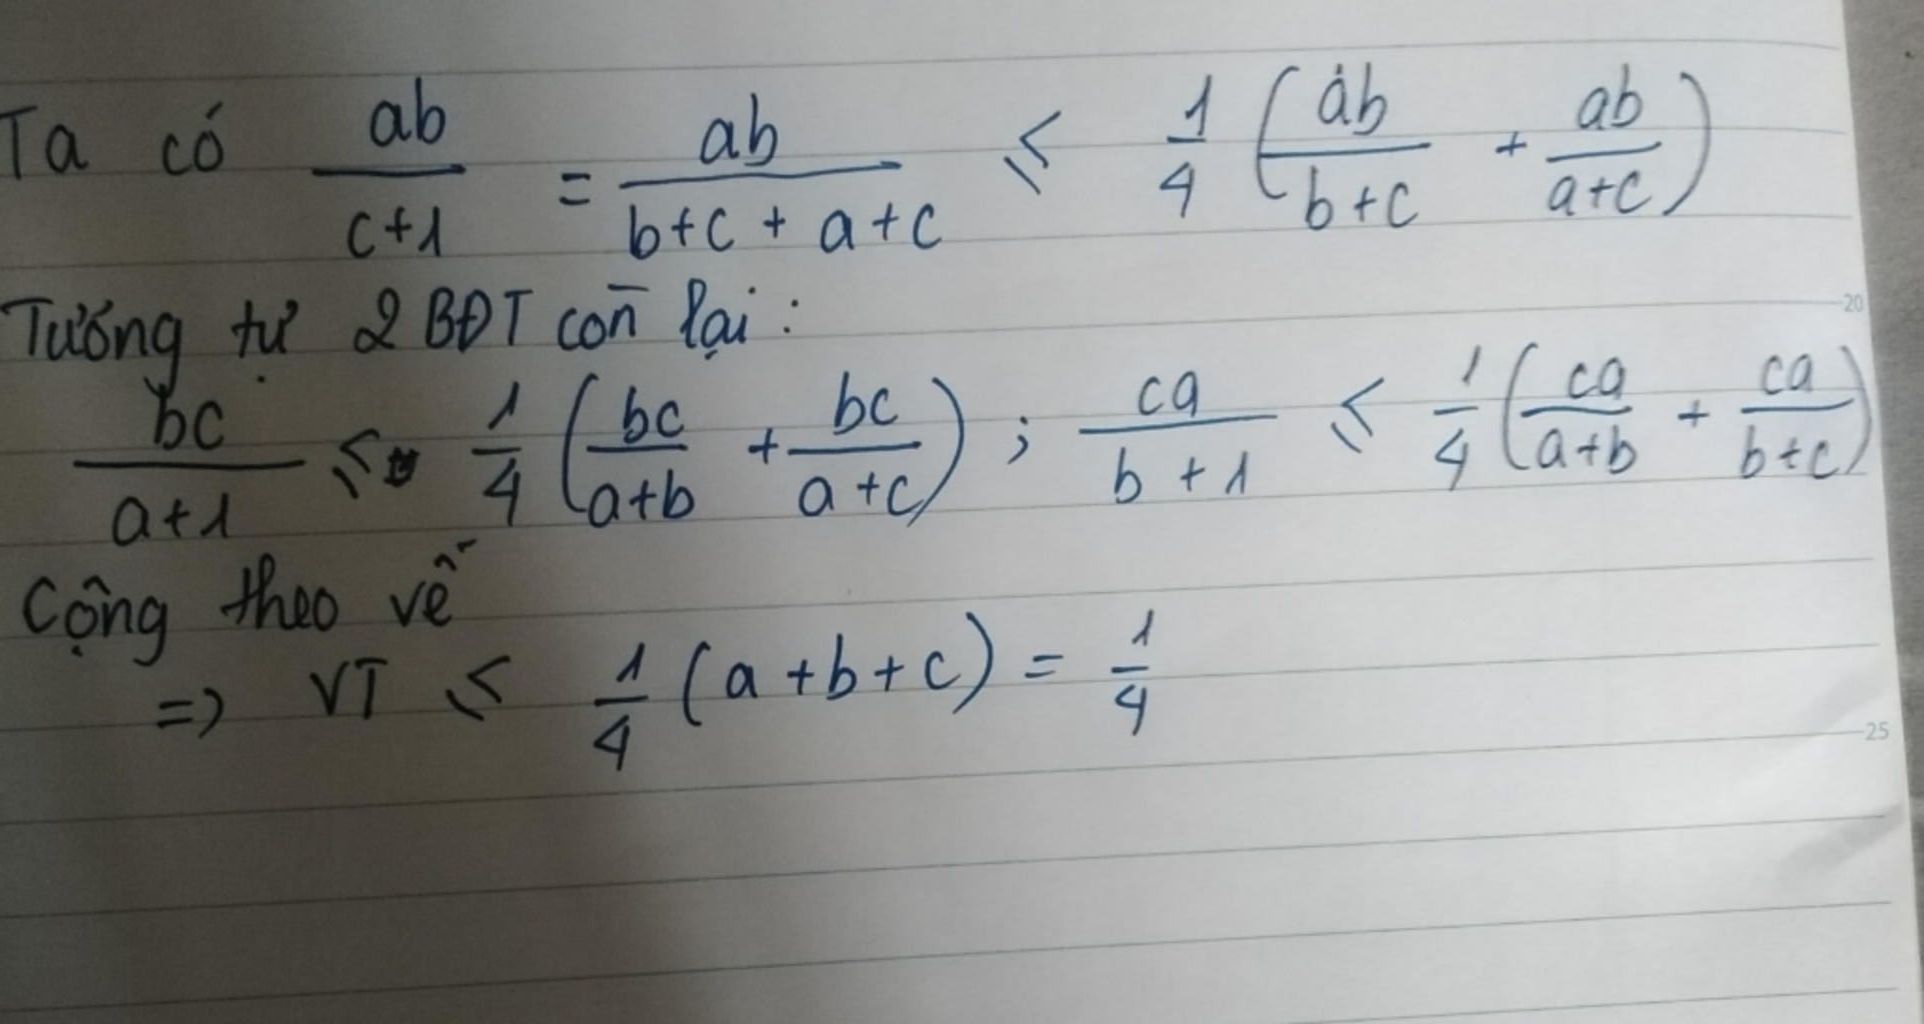 Ta có ab/(c+1) = ab/(b+c + a+c) ≤ 1/4 (ab/(b+c) + ab/(a+c))
20
Tướng tự 2 BĐT còn lại :
bc/(a+1) ≤ 1/4 (bc/(a+b) + bc/(a+c)) ; ca/(b+1) ≤ 1/4 (ca/(a+b) + ca/(b+c))
Cộng theo vế
=> VT ≤ 1/4 (a+b+c) = 1/4
25